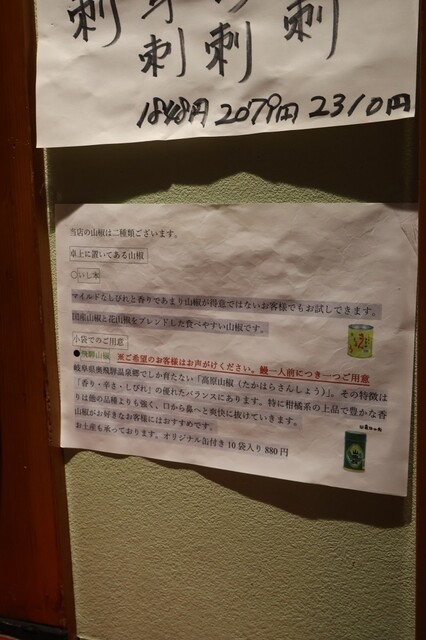 刺 刺
刺 刺
1848円 2079円 2310円
当店の山椒は二種類ございます。
卓上に置いてある山椒
マイルドなしびれと香りであまり山椒が得意ではないお客様でもお試しできます。
国産山椒と花山椒をブレンドした食べやすい山椒です。
小袋でのご用意
●飛騨山椒 ※ご希望のお客様はお声がけください。鰻一人前につき一つご用意
岐阜県奥飛騨温泉郷でしか育たない「高原山椒（たかはらさんしょう）」。その特徴は
「香り・辛さ・しびれ」の優れたバランスにあります。特に柑橘系の上品で豊かな香
りは他の品種よりも強く、口から鼻へと爽快に抜けていきます。
山椒がお好きなお客様にはおすすめです。
お土産も承っております。オリジナル缶付き10袋入り880円